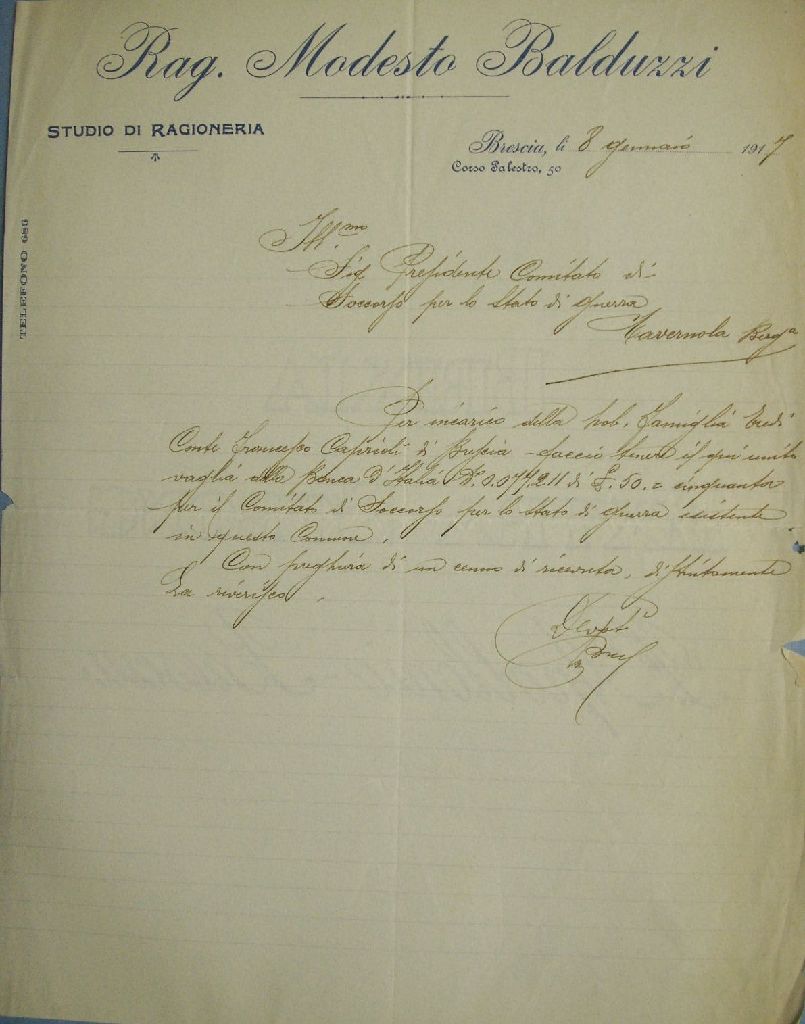 Rag. Modesto Balduzzi
STUDIO DI RAGIONERIA
Brescia, li 8 gennaio 1917
Corso Palestro, 50
TELEFONO 686
Ill.mo
Sig. Presidente Comitato di
Soccorso per lo Stato di guerra
Tavernola Berg.a
Per incarico della nob. Famiglia Eredi
Conte Francesco Caprioli di Brescia faccio tenere il qui unito
vaglia della Banca d'Italia N. 0.077.211 di £. 50.= cinquanta
per il Comitato di Soccorso per lo Stato di guerra esistente
in questo Comune.
Con preghiera di un cenno di ricevuta, distintamente
La riverisco.
Devot.